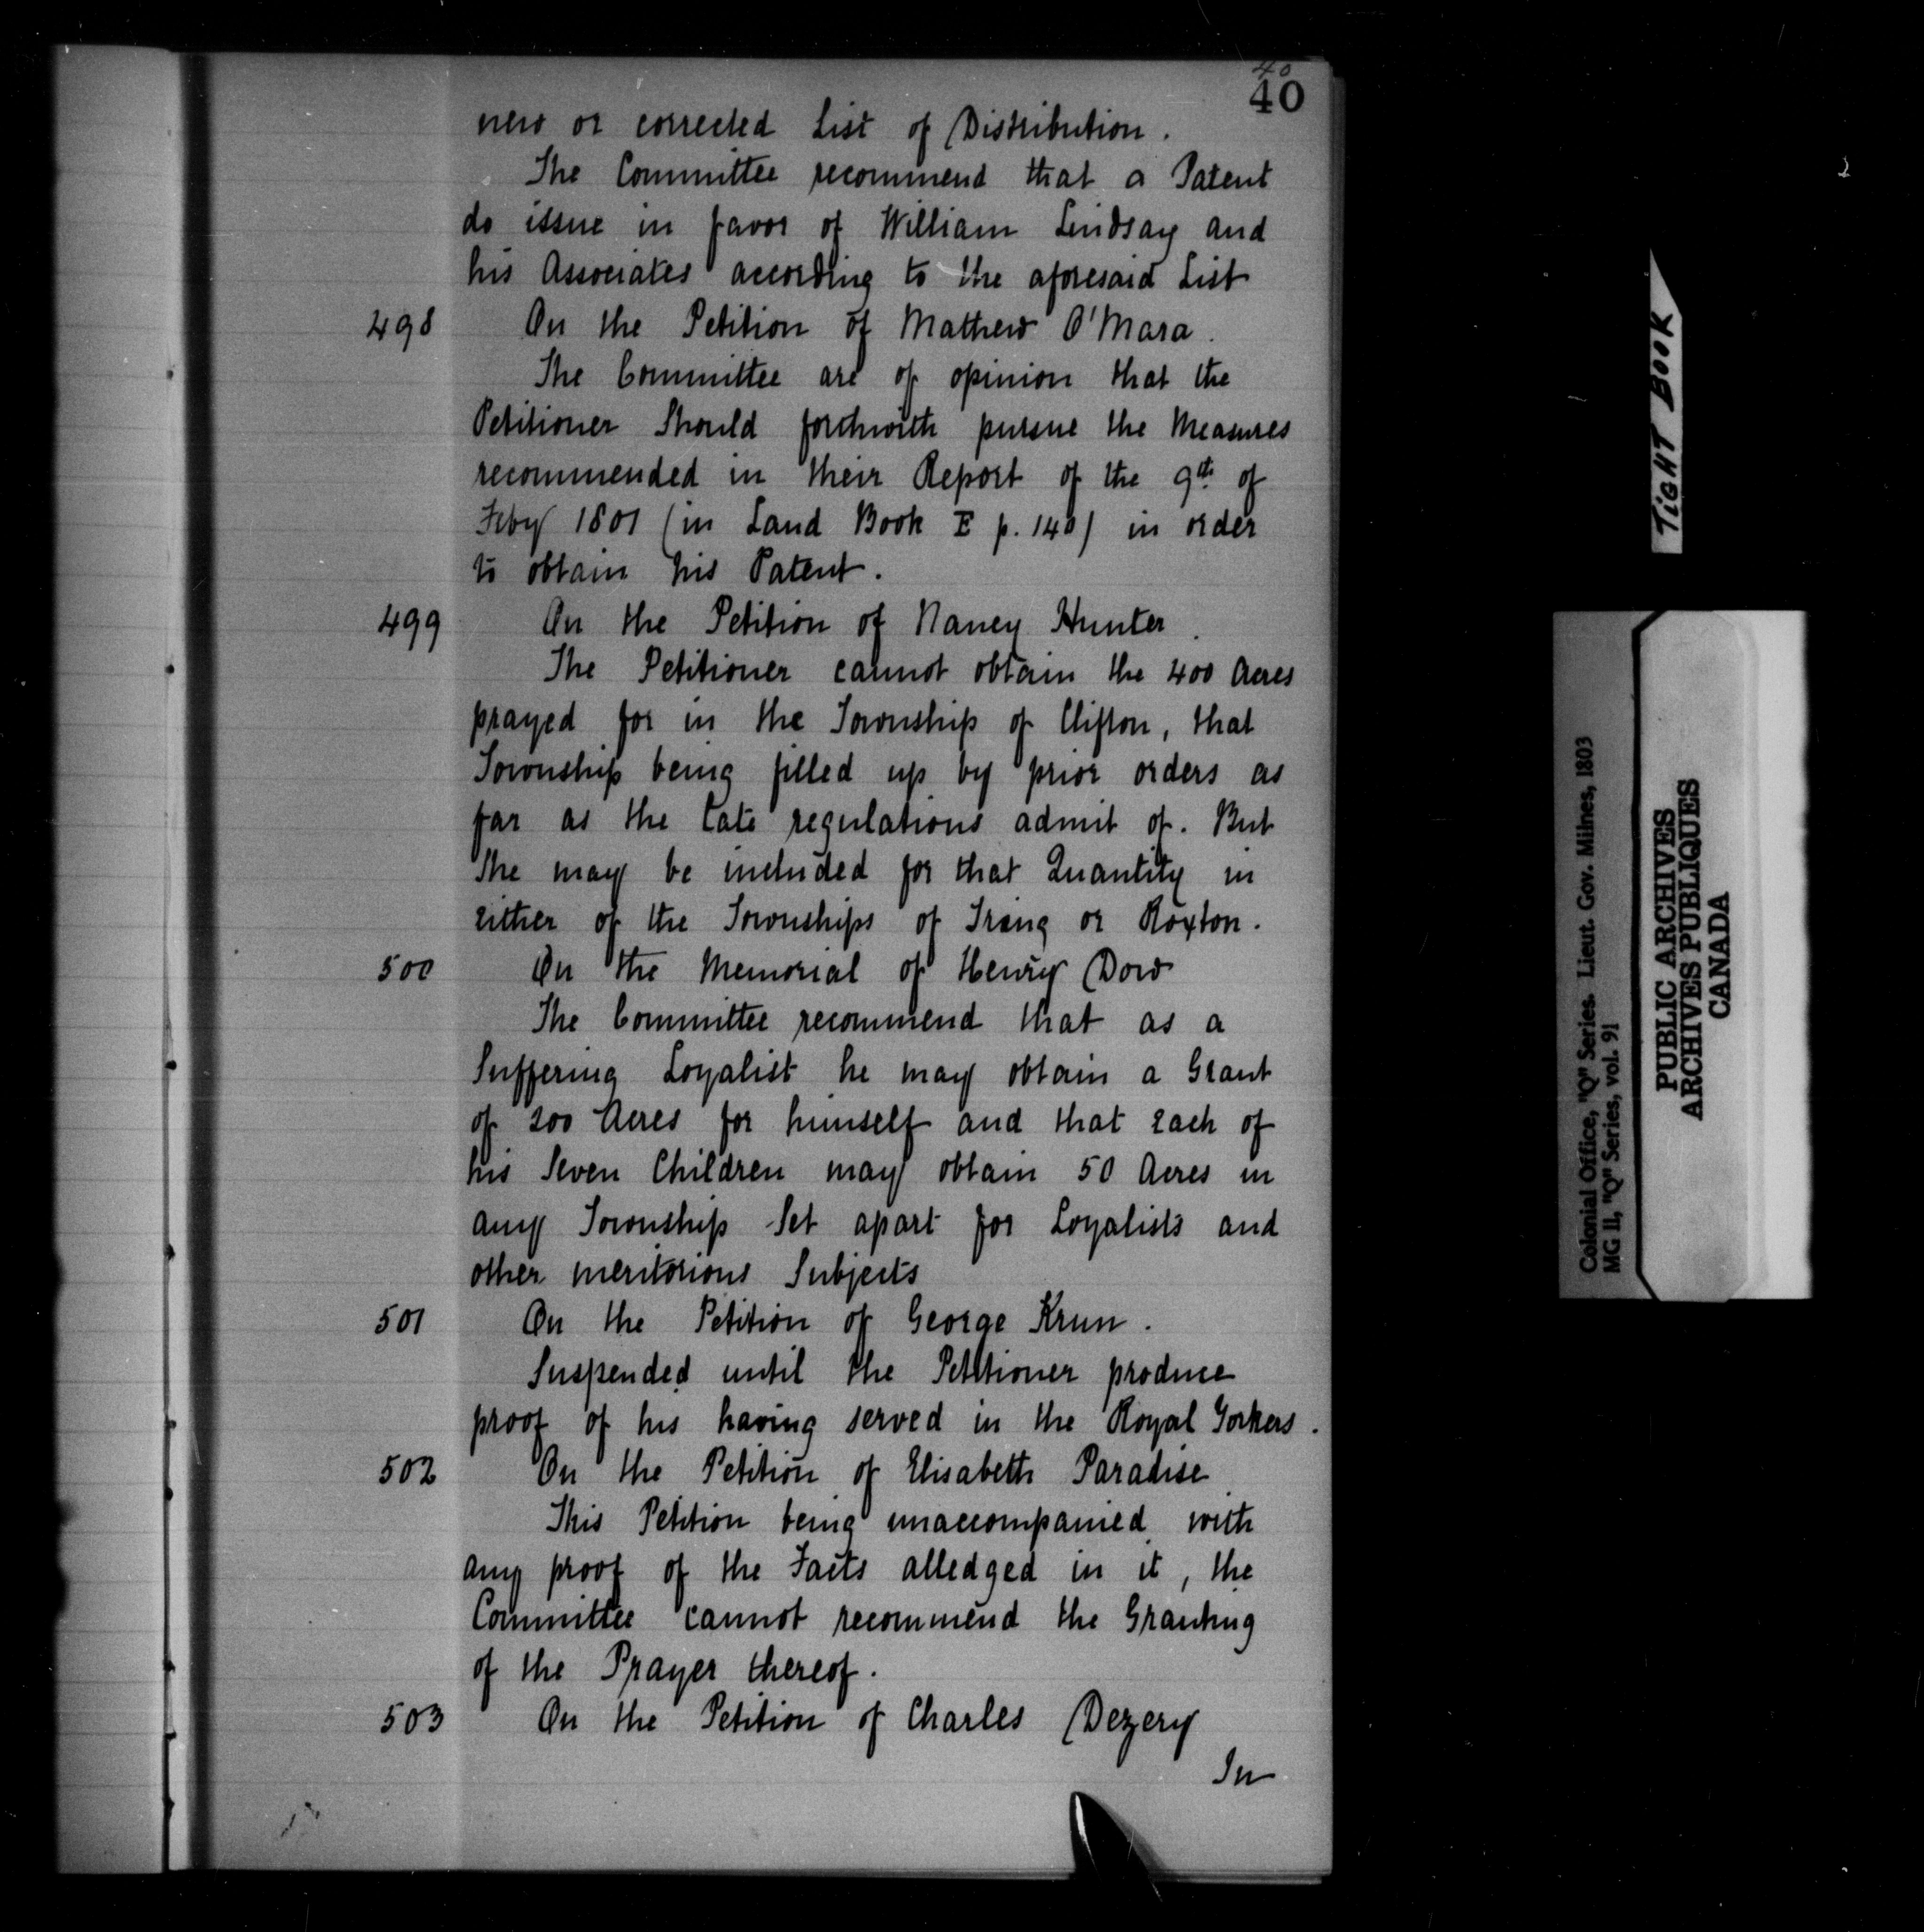 40
40
new or corrected List of Distribution.
The Committee recommend that a Patent
do issue in favor of William Lindsay and
his Associates according to the aforesaid List
498 On the Petition of Mathew O'Mara.
The Committee are of opinion that the
Petitioner Should forthwith pursue the Measures
recommended in their Report of the 9th of
Feby 1801 (in Land Book E p. 140) in order
to obtain his Patent.
499 On the Petition of Nancy Hunter.
The Petitioner cannot obtain the 400 Acres
prayed for in the Township of Clifton, that
Township being filled up by prior orders as
far as the late regulations admit of. But
She may be included for that Quantity in
either of the Townships of Tring or Roxton.
500 On the Memorial of Henry Dow
The Committee recommend that as a
Suffering Loyalist he may obtain a Grant
of 200 Acres for himself and that each of
his Seven Children may obtain 50 Acres in
any Township Set apart for Loyalists and
other meritorious Subjects
501 On the Petition of George Krun.
Suspended until the Petitioner produce
proof of his having served in the Royal Yorkers.
502 On the Petition of Elisabeth Paradise
This Petition being unaccompanied with
any proof of the Facts alledged in it, the
Committee cannot recommend the Granting
of the Prayer thereof.
503 On the Petition of Charles Dezery
In
TIGHT BOOK
Colonial Office, "Q" Series. Lieut. Gov. Milnes, 1803
MG 11, "Q" Series, vol. 91
PUBLIC ARCHIVES
ARCHIVES PUBLIQUES
CANADA